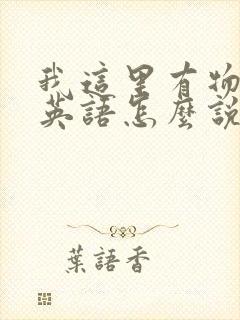 我這里有物
英語怎麼說
葉語香